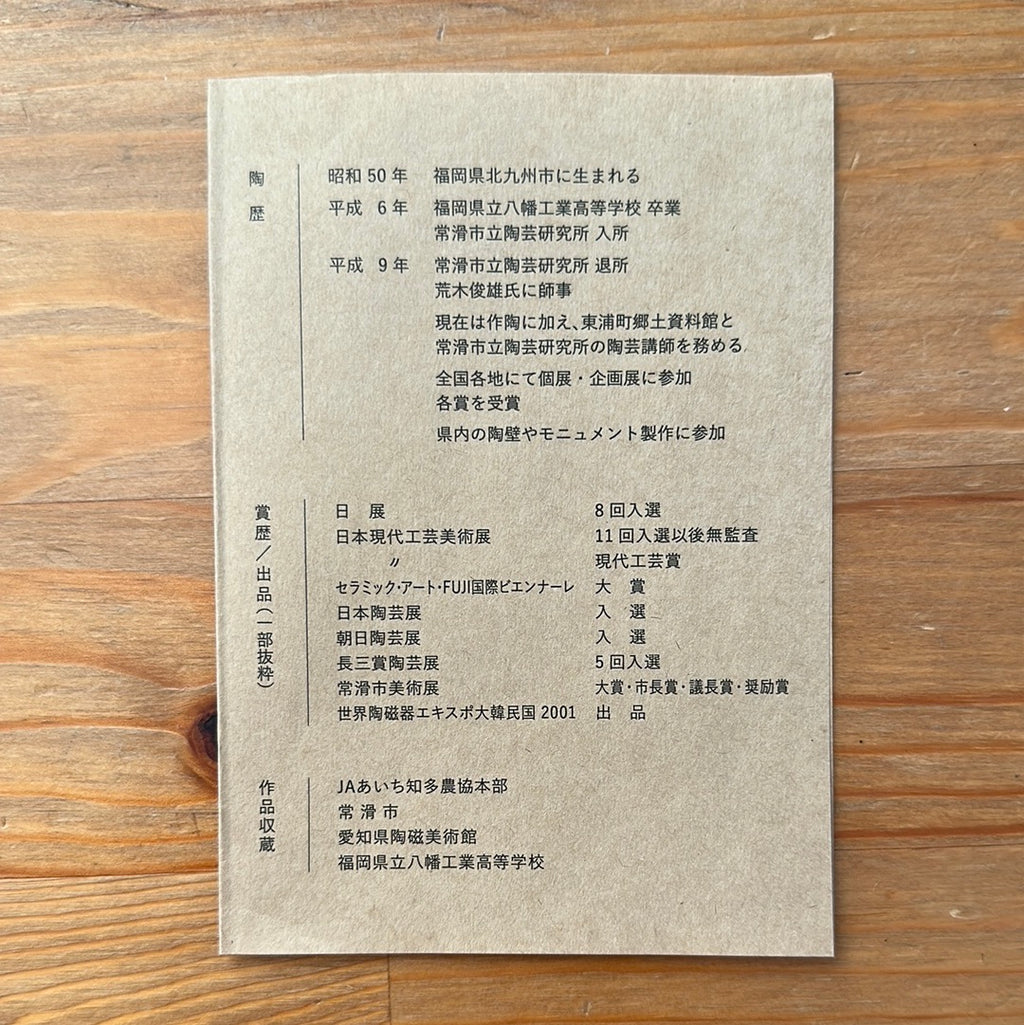 陶歴
昭和 50 年 福岡県北九州市に生まれる
平成 6 年 福岡県立八幡工業高等学校 卒業
常滑市立陶芸研究所 入所
平成 9 年 常滑市立陶芸研究所 退所
荒木俊雄氏に師事
現在は作陶に加え、東浦町郷土資料館と
常滑市立陶芸研究所の陶芸講師を務める
全国各地にて個展・企画展に参加
各賞を受賞
県内の陶壁やモニュメント製作に参加
賞歴／出品（一部抜粋）
日 展 8 回入選
日本現代工芸美術展 11 回入選以後無監査
〃 現代工芸賞
セラミック・アート・FUJI国際ビエンナーレ 大 賞
日本陶芸展 入 選
朝日陶芸展 入 選
長三賞陶芸展 5 回入選
常滑市美術展 大賞・市長賞・議長賞・奨励賞
世界陶磁器エキスポ大韓民国 2001 出 品
作品収蔵
JAあいち知多農協本部
常 滑 市
愛知県陶磁美術館
福岡県立八幡工業高等学校